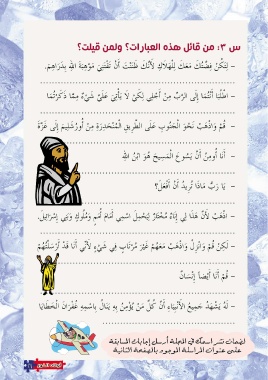 س ٣: من قائل هذه العبارات؟ ولمن قيلت؟
- لِتَكُنْ فِضَّتُكَ مَعَكَ لِلْهَلاَكِ لأَنَّكَ ظَنَنْتَ أَنْ تَقْتَنِيَ مَوْهِبَةَ اللهِ بِدَرَاهِمَ.
- اطْلُبَا أَنْتُمَا إِلَى الرَّبِّ مِنْ أَجْلِي لِكَيْ لاَ يَأْتِيَ عَلَيَّ شَيْءٌ مِمَّا ذَكَرْتُمَا
- قُمْ وَاذْهَبْ نَحْوَ الْجَنُوبِ عَلَى الطَّرِيقِ الْمُنْحَدِرَةِ مِنْ أُورُشَلِيمَ إِلَى غَزَّةَ
- أَنَا أُومِنُ أَنَّ يَسُوعَ الْمَسِيحَ هُوَ ابْنُ اللهِ
- يَا رَبُّ مَاذَا تُرِيدُ أَنْ أَفْعَلَ؟
- اذْهَبْ لأَنَّ هَذَا لِي إِنَاءٌ مُخْتَارٌ لِيَحْمِلَ اسْمِي أَمَامَ أُمَمٍ وَمُلُوكٍ وَبَنِي إِسْرَائِيلَ.
- لَكِنْ قُمْ وَانْزِلْ وَاذْهَبْ مَعَهُمْ غَيْرَ مُرْتَابٍ فِي شَيْءٍ لأَنِّي أَنَا قَدْ أَرْسَلْتُهُمْ
- قُمْ أَنَا أَيْضاً إِنْسَانٌ
- لَهُ يَشْهَدُ جَمِيعُ الأَنْبِيَاءِ أَنَّ كُلَّ مَنْ يُؤْمِنُ بِهِ يَنَالُ بِاسْمِهِ غُفْرَانَ الْخَطَايَا
لضمان نشر اسمك في المجلة أرسل إجابات المسابقة
على عنوان المراسلة الموجود بالصفحة الثانية